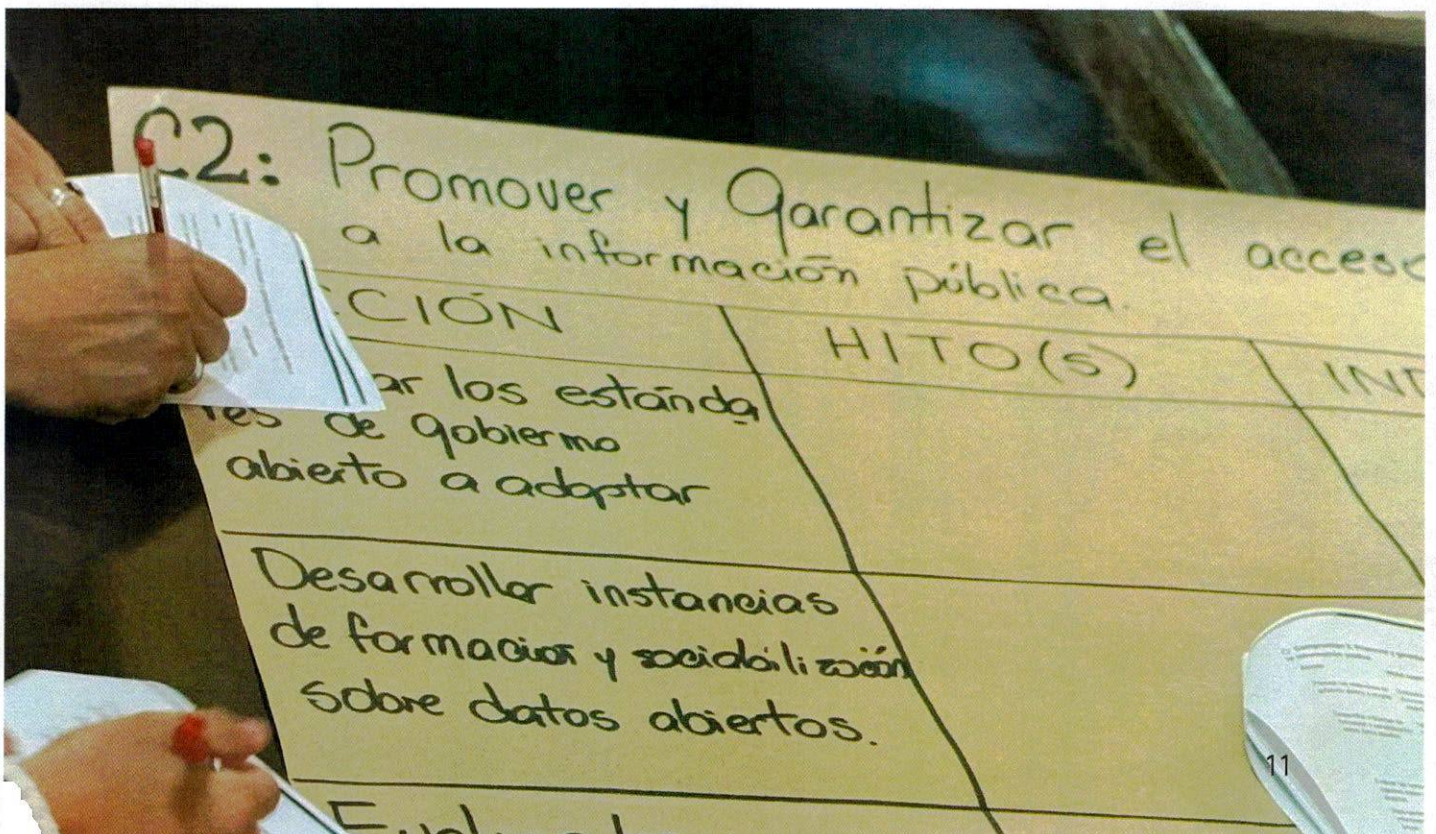 C2: Promover y Garantizar el acceso
a la información pública.
CIÓN
HITO(S)
IN
ar los estánda
res de gobierno
abierto a adoptar
Desarrollar instancias
de formación y sociabilización
sobre datos abiertos.
11